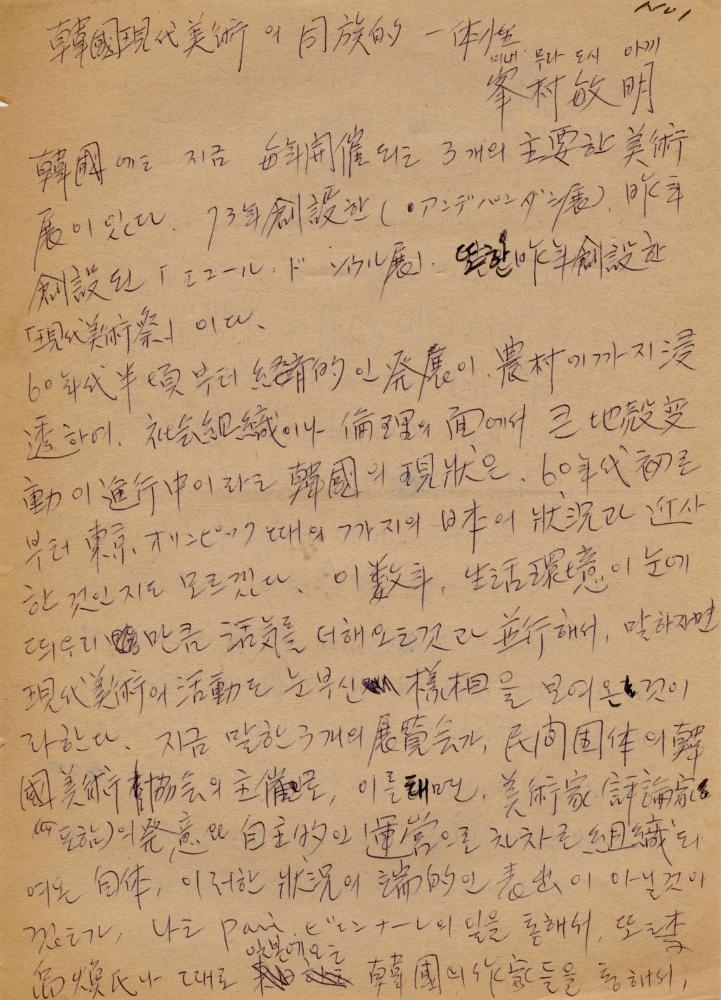 No 1
韓國現代美術의 同族的 一体性
미네 무라 도시 아끼
峯村敏明
韓國에는 지금 每年開催되는 3개의 主要한 美術
展이 있다. 73年創設한 (アンデパンダン展), 昨年
創設된 「エコール・ド ソウル展」. 또한 昨年創設한
「現代美術祭」이다.
60年代半頃부터 経済的인 発展이 農村에까지 浸
透하여, 社会組織이나 倫理의 面에서 큰 地殻変
動이 進行中이라는 韓國의 現狀은, 60年代初로
부터 東京オリンピック때의 까지의 日本의 狀況과 近似
한 것인지도 모르겠다. 이 数年, 生活環境이 눈에
띄우리 만큼 活気를 더해오는것과 並行해서, 말하자면
現代美術의 活動도 눈부신 様相을 보여온 것이
라한다. 지금 말한 3개의 展覧会가, 民間団体의 韓
國美術協会의 主催로, 이를테면, 美術家(評論家
도 포함)의 発意와 自主的인 運営으로 차차로 組織되
여온 自体, 이러한 狀況의 端的인 表出이 아닐것이
겠는가, 나는 Pari ビエンナーレ의 일을 통해서, 또는 李
일본에 오는
禹煥氏나 때로 韓國의 作家들을 통해서,